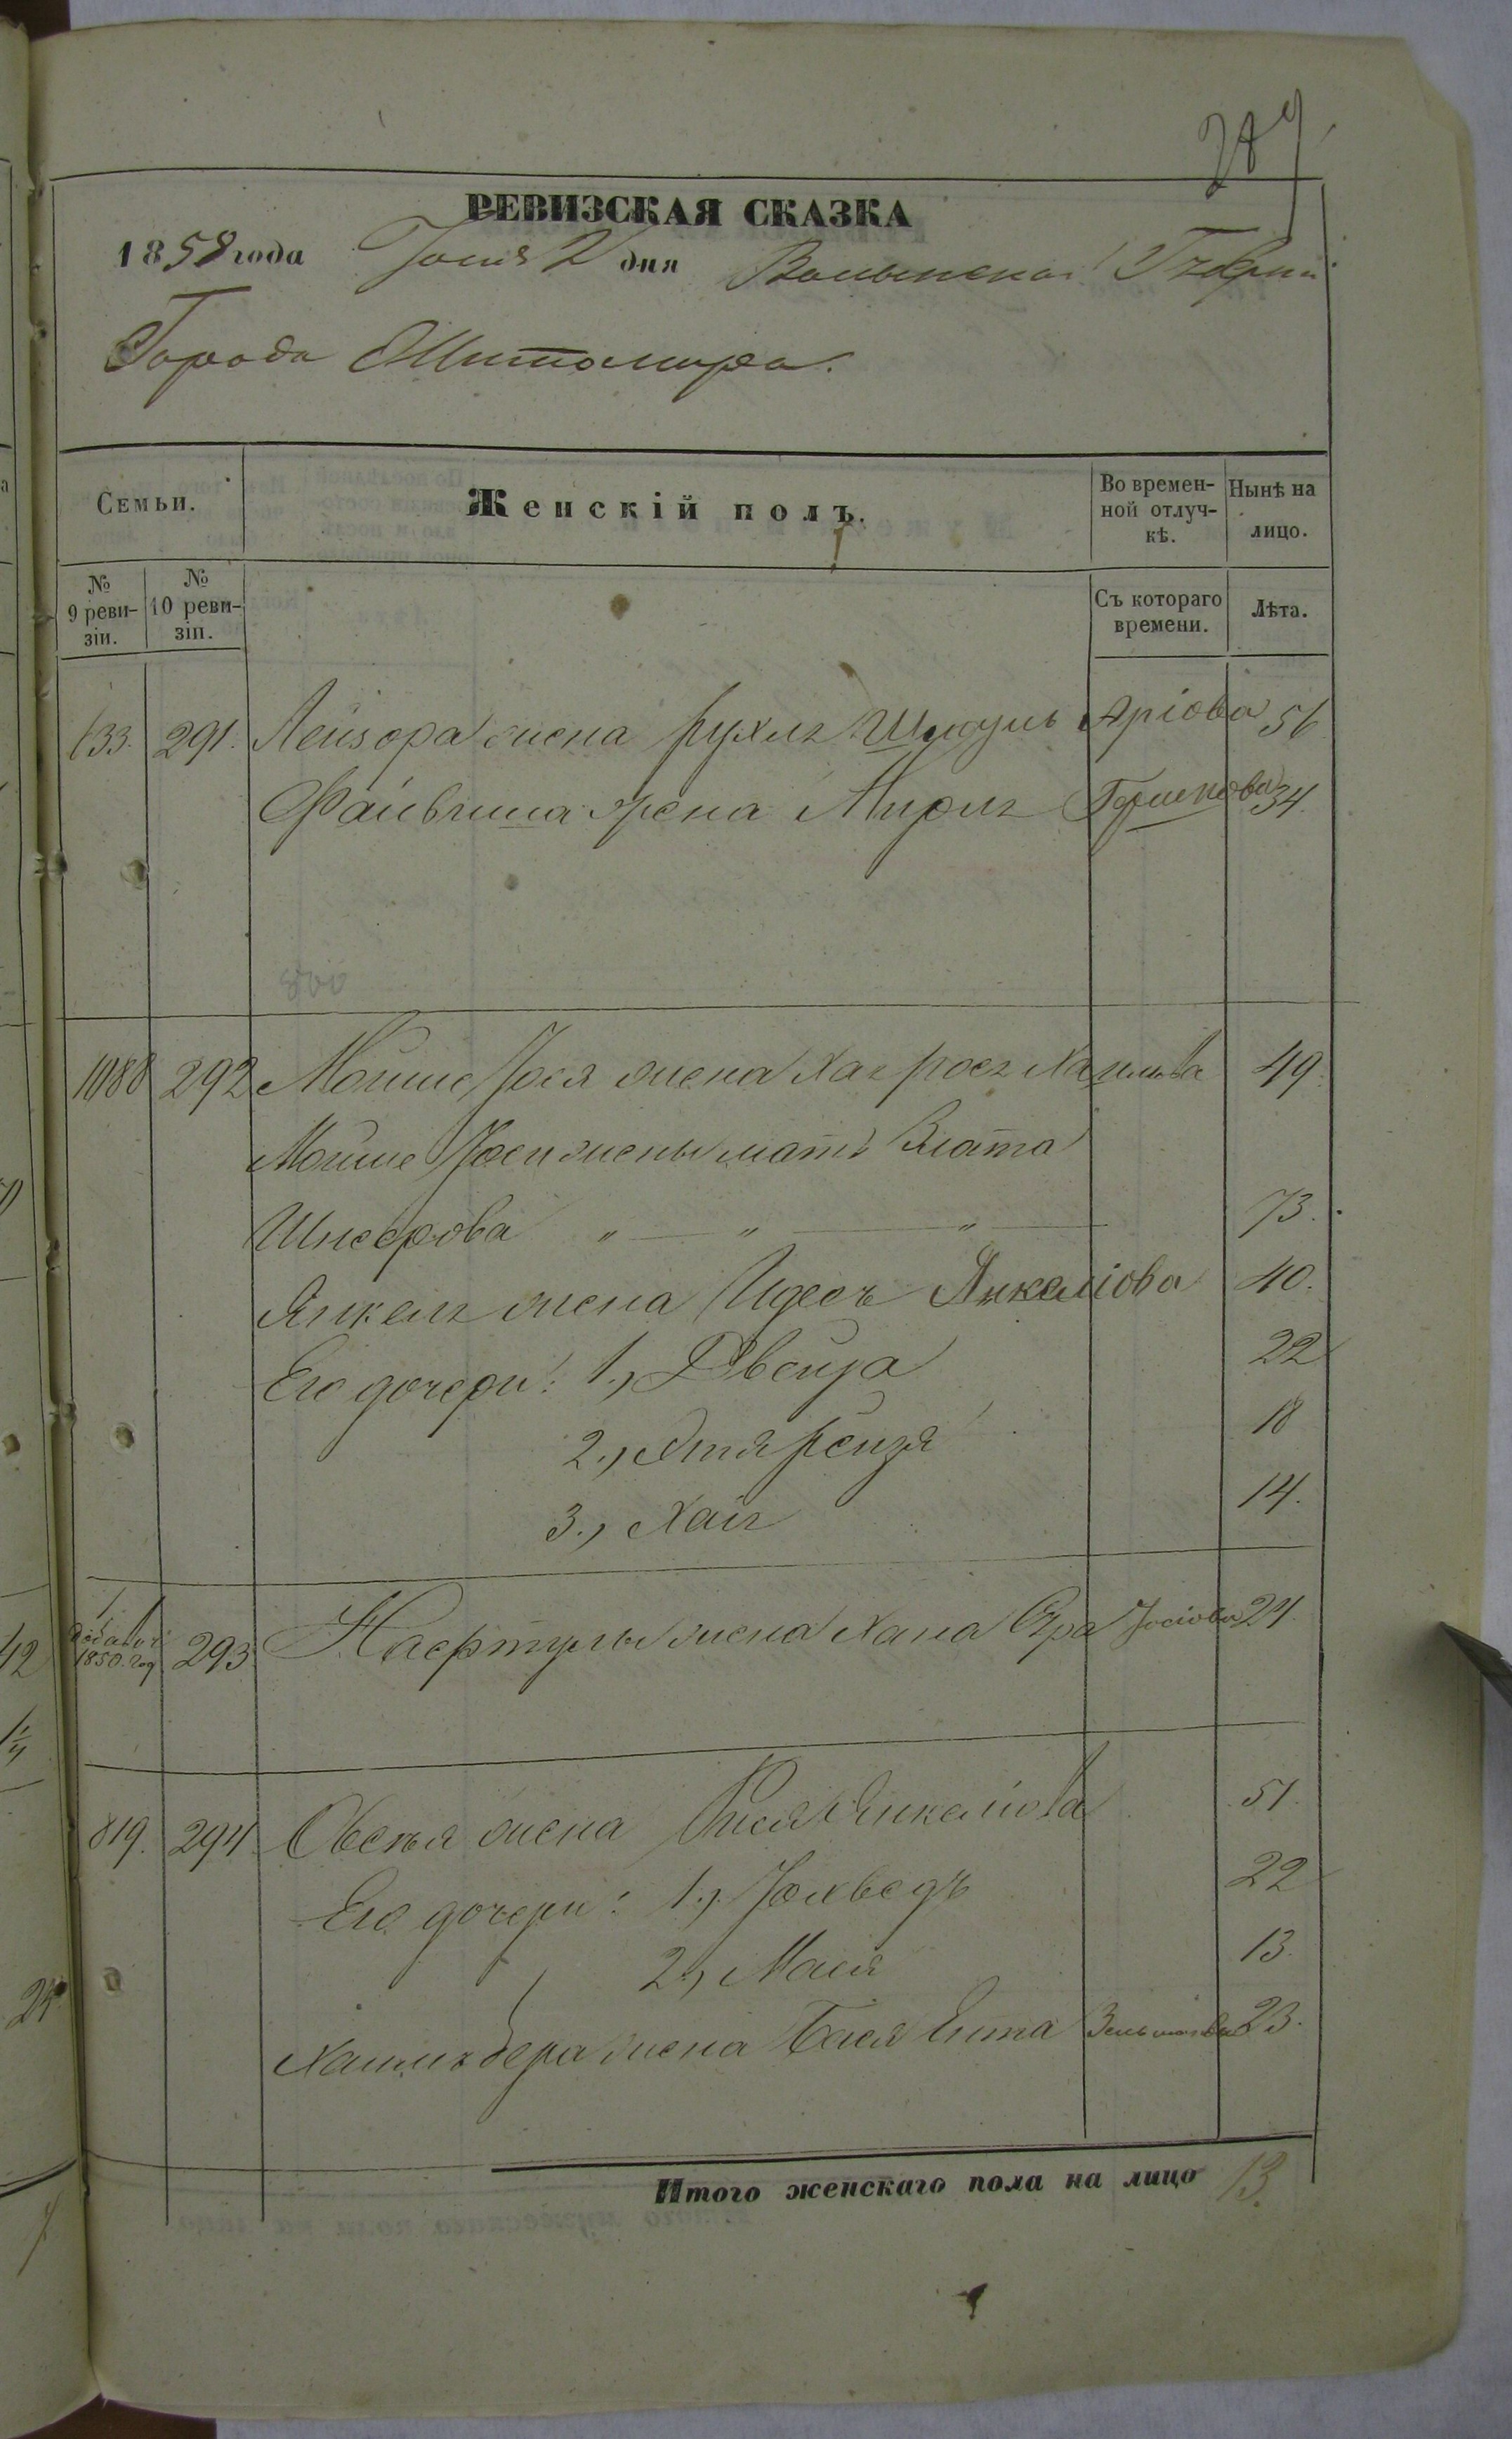 289
РЕВИЗСКАЯ СКАЗКА
1858 года Іюня 2 дня Волынской Губерніи
Города Житомира.
Семьи. Женскій полъ. Во времен- Нынѣ на
ной отлуч- лицо.
кѣ.
№ № Съ котораго Лѣта.
9 реви- 10 реви- времени.
зіи. зіи.
133. 291. Лейзора жена Рухля Шмуль Аріова 56
Файвиша жена Мирля Гершкова 34.
1088 292 Мошие Іося жена Хая Рося Хаимова 49.
Мошие Іоси жены мать Злата
Шнеерова " — " — " — 73.
Янкеля жена Идесъ Янкеліова 40.
Его дочери: 1., Двейра 22
2., Этя Рейзя 18
3., Хая 14.
1850 год 293 жена Хана Сура Іосіова 24.
819. 294 Овсея жена Янкеліова 51.
Его дочери: 1., Юхведъ 22
2., Мася 13.
Хаимъ Бера жена Бася Ента 23.
Итого женскаго пола на лицо 13.